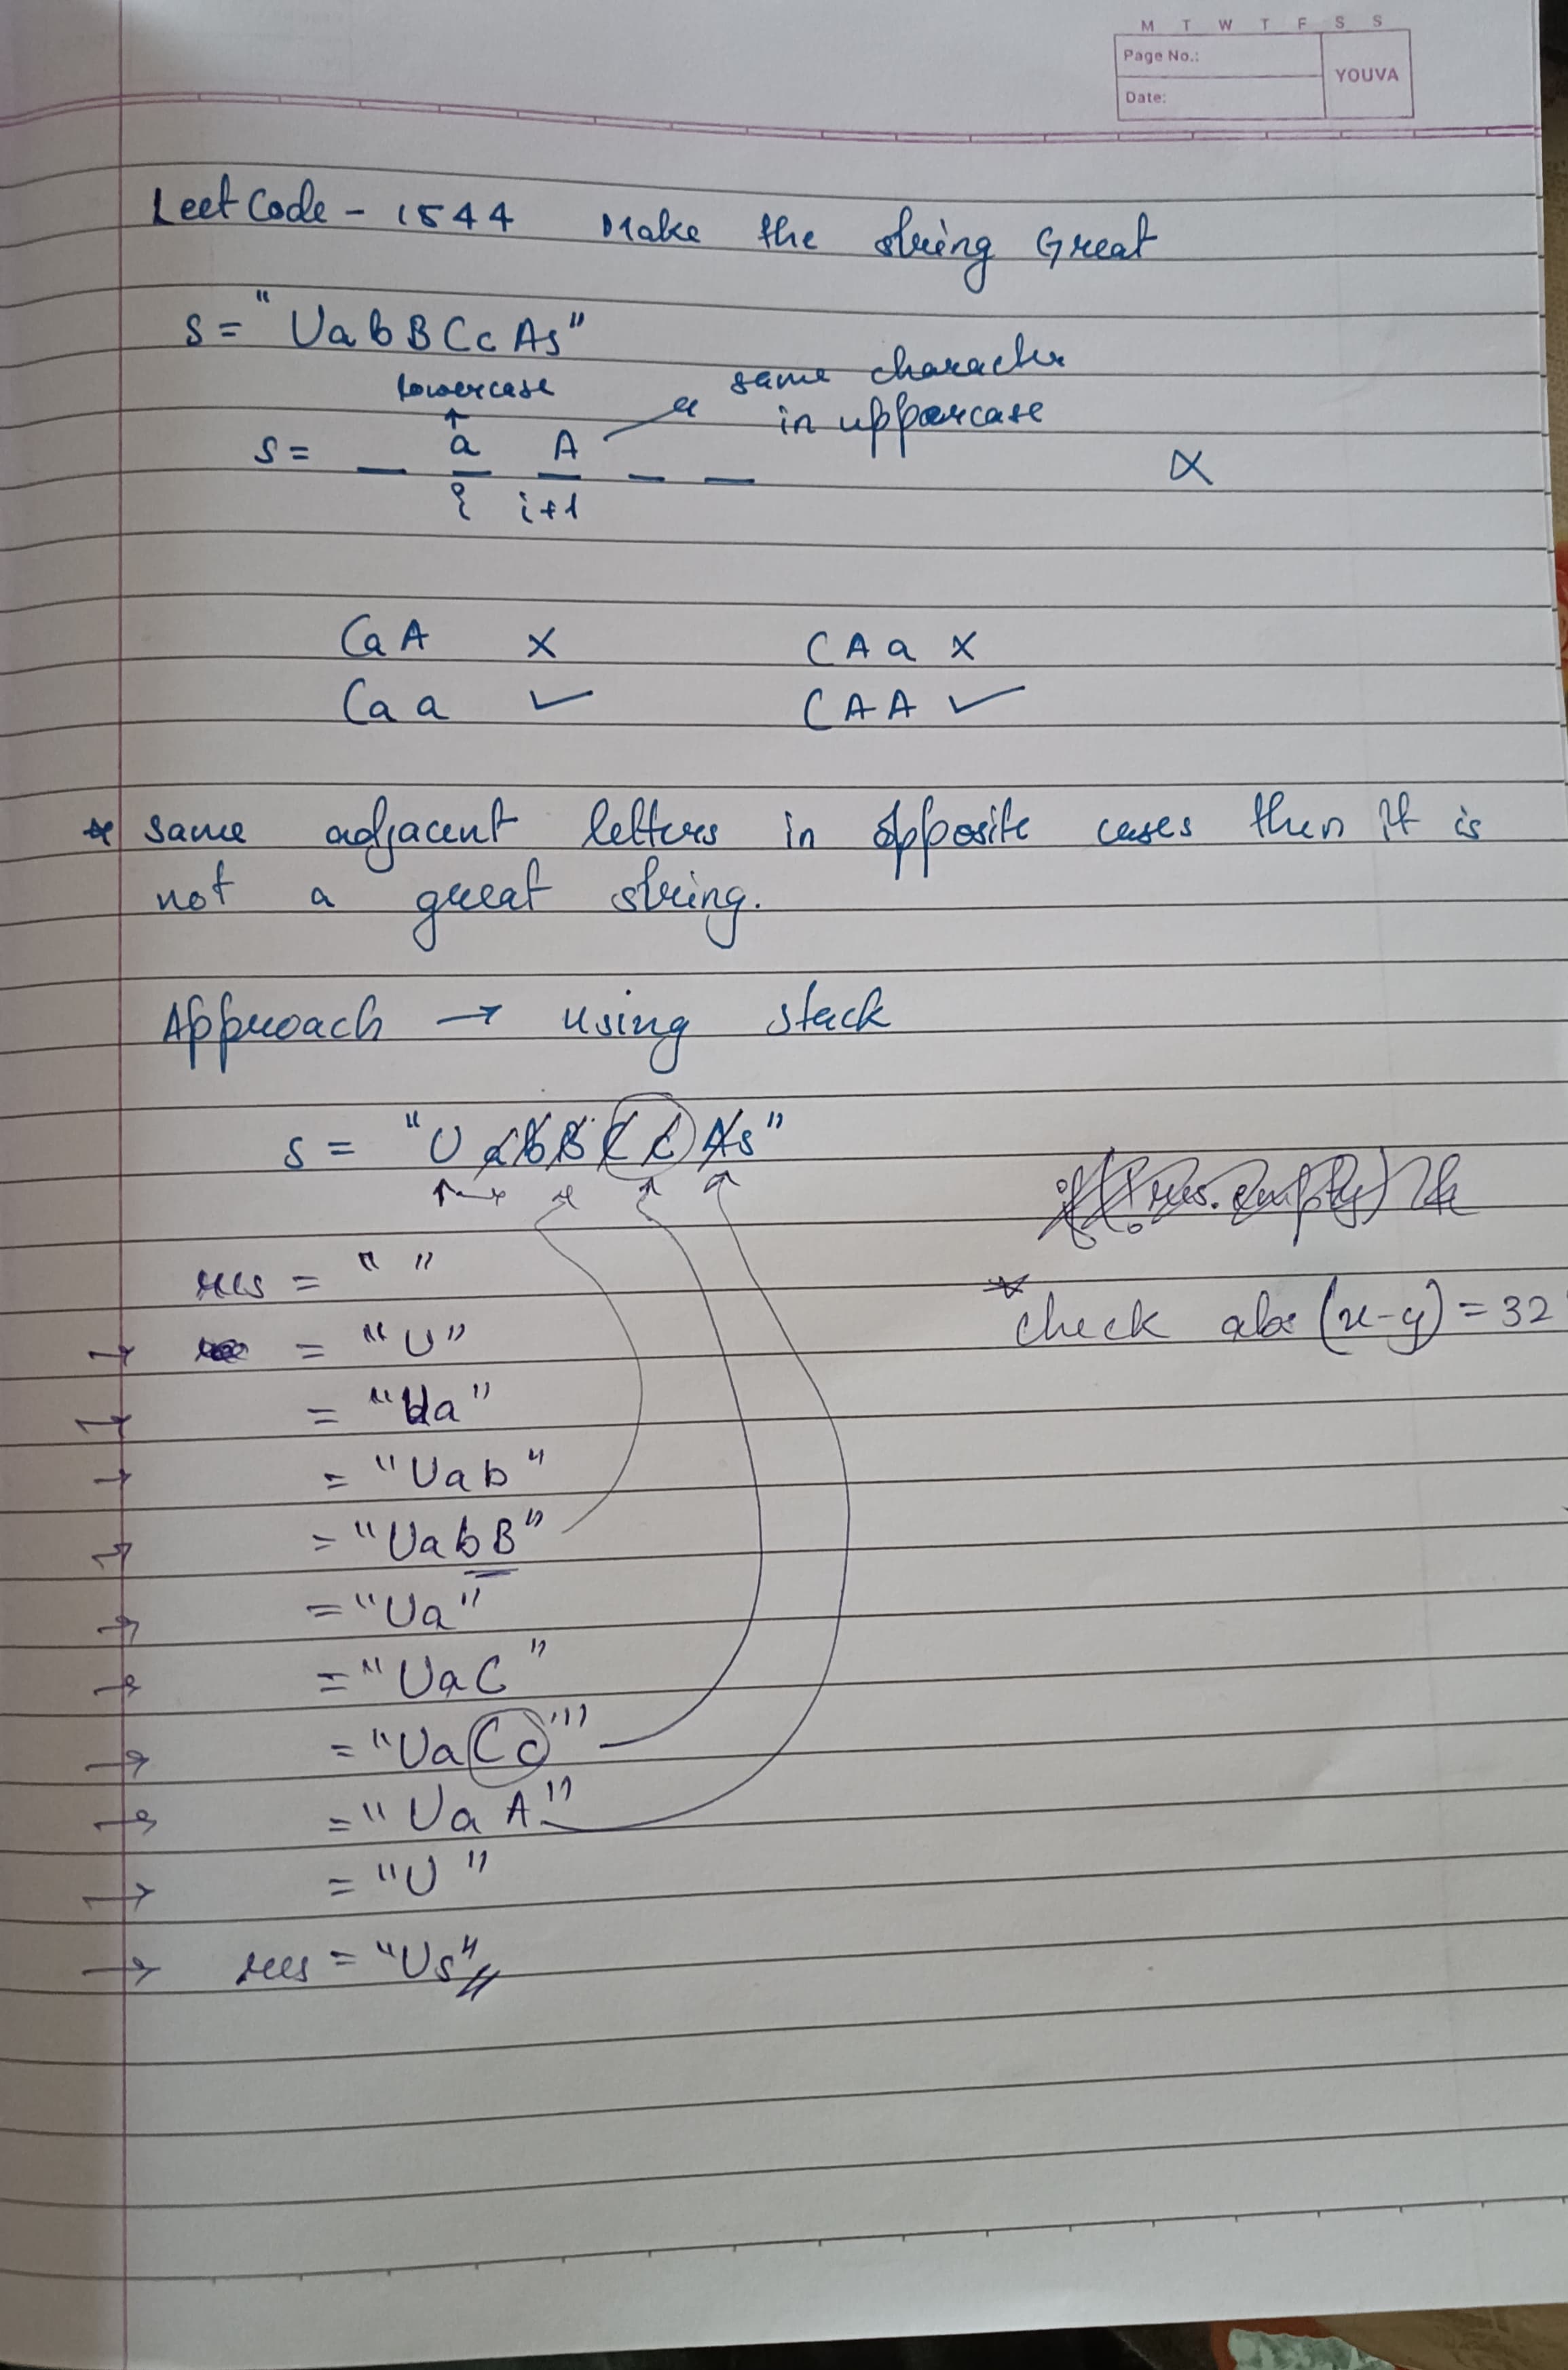 M T W T F S S
Page No.:
YOUVA
Date:
LeetCode - 1544 Make the string Great
s = "UabBCcAs"
lowercase
same character
in uppercase
s = _ a A _ _
i i+1
CaA ×
CAa ×
Caa ✓
CAA ✓
* same adjacent letters in opposite cases then it is
not a great string.
Approach → using stack
s = "UabBCcAs"
res = " "
* check abs (x-y) = 32
→ = "U"
→ = "Ua"
→ = "Uab"
→ = "UabB"
→ = "Ua"
→ = "UaC"
→ = "UaCc"
→ = "UaA"
→ = "U"
→ res = "Us"